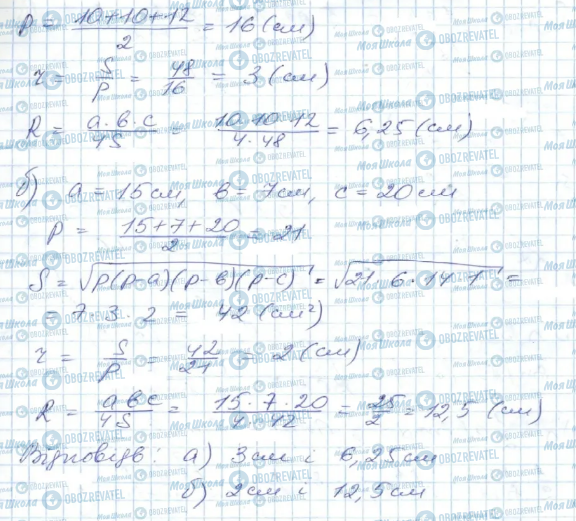 p = (10+10+12)/2 = 16 (см)
r = S/p = 48/16 = 3 (см)
R = (a·в·c)/4S = (10·10·12)/(4·48) = 6,25 (см)
б) a = 15 см, в = 7 см, c = 20 см
p = (15+7+20)/2 = 21
S = √(p(p-a)(p-в)(p-c)) = √(21·6·14·1) =
= 7·3·2 = 42 (см²)
r = S/p = 42/21 = 2 (см)
R = aвc/4S = (15·7·20)/(4·42) = 25/2 = 12,5 (см)
Відповідь: а) 3 см і 6,25 см
б) 2 см і 12,5 см